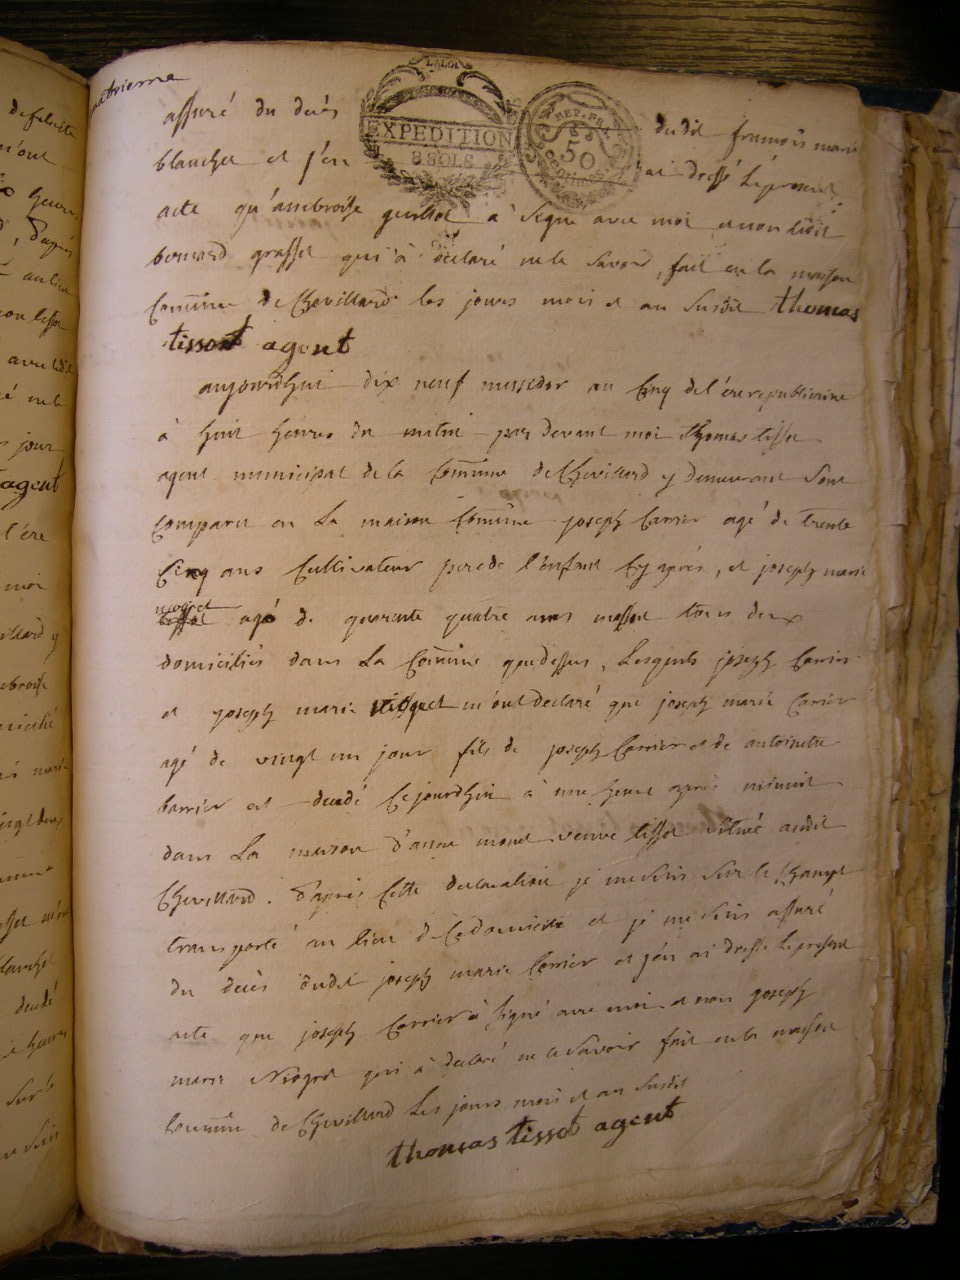 quatrieme
LA LOI
EXPEDITION
8 SOLS
REP. FRA.
50
centimes
assuré du decès dudit françois marie
blanchet et j'en ai dressé le present
acte qu'ambroise guillot à signé avec moi et non ledit
bernard grasset qui à déclaré ne le savoir, fait en la maison
Comũne de Chevillard les jours mois et an susdit thomas
tissot agent
aujourdhui dix neuf messidor an Cinq de l'ère republicaine
à huit heures du matin par devant moi thomas tissot
agent municipal de la Comũne de Chevillard y demeurant sont
comparu en La maison Comũne joseph Carrier agé de trente
Cinq ans Cultivateur pere de l'enfant Cy après, et joseph marie
niogret
tissot agé de quarante quatre ans tous deux
domiciliés dans La Comũne que dessus, Lesquels joseph Carrier
et joseph marie niogret m'ont declaré que joseph marie Carrier
agé de vingt un jour fils de joseph Carrier et de antoinette
barrier est decedé Cejourdhui à une heure après minuit
dans La maison d'anne veuve tissot situé audit
Chevillard. d'après Cette declaration je me suis sur le Champ
transporté au lieu de Ce domicile et je me suis assuré
du decès dudit joseph marie Carrier et j'en ai dressé le present
acte que joseph Carrier à signé avec moi et non joseph
marie Niogret qui à declaré ne le savoir fait en la maison
Comũne de Chevillard Les jours mois et an susdit
thomas tissot agent